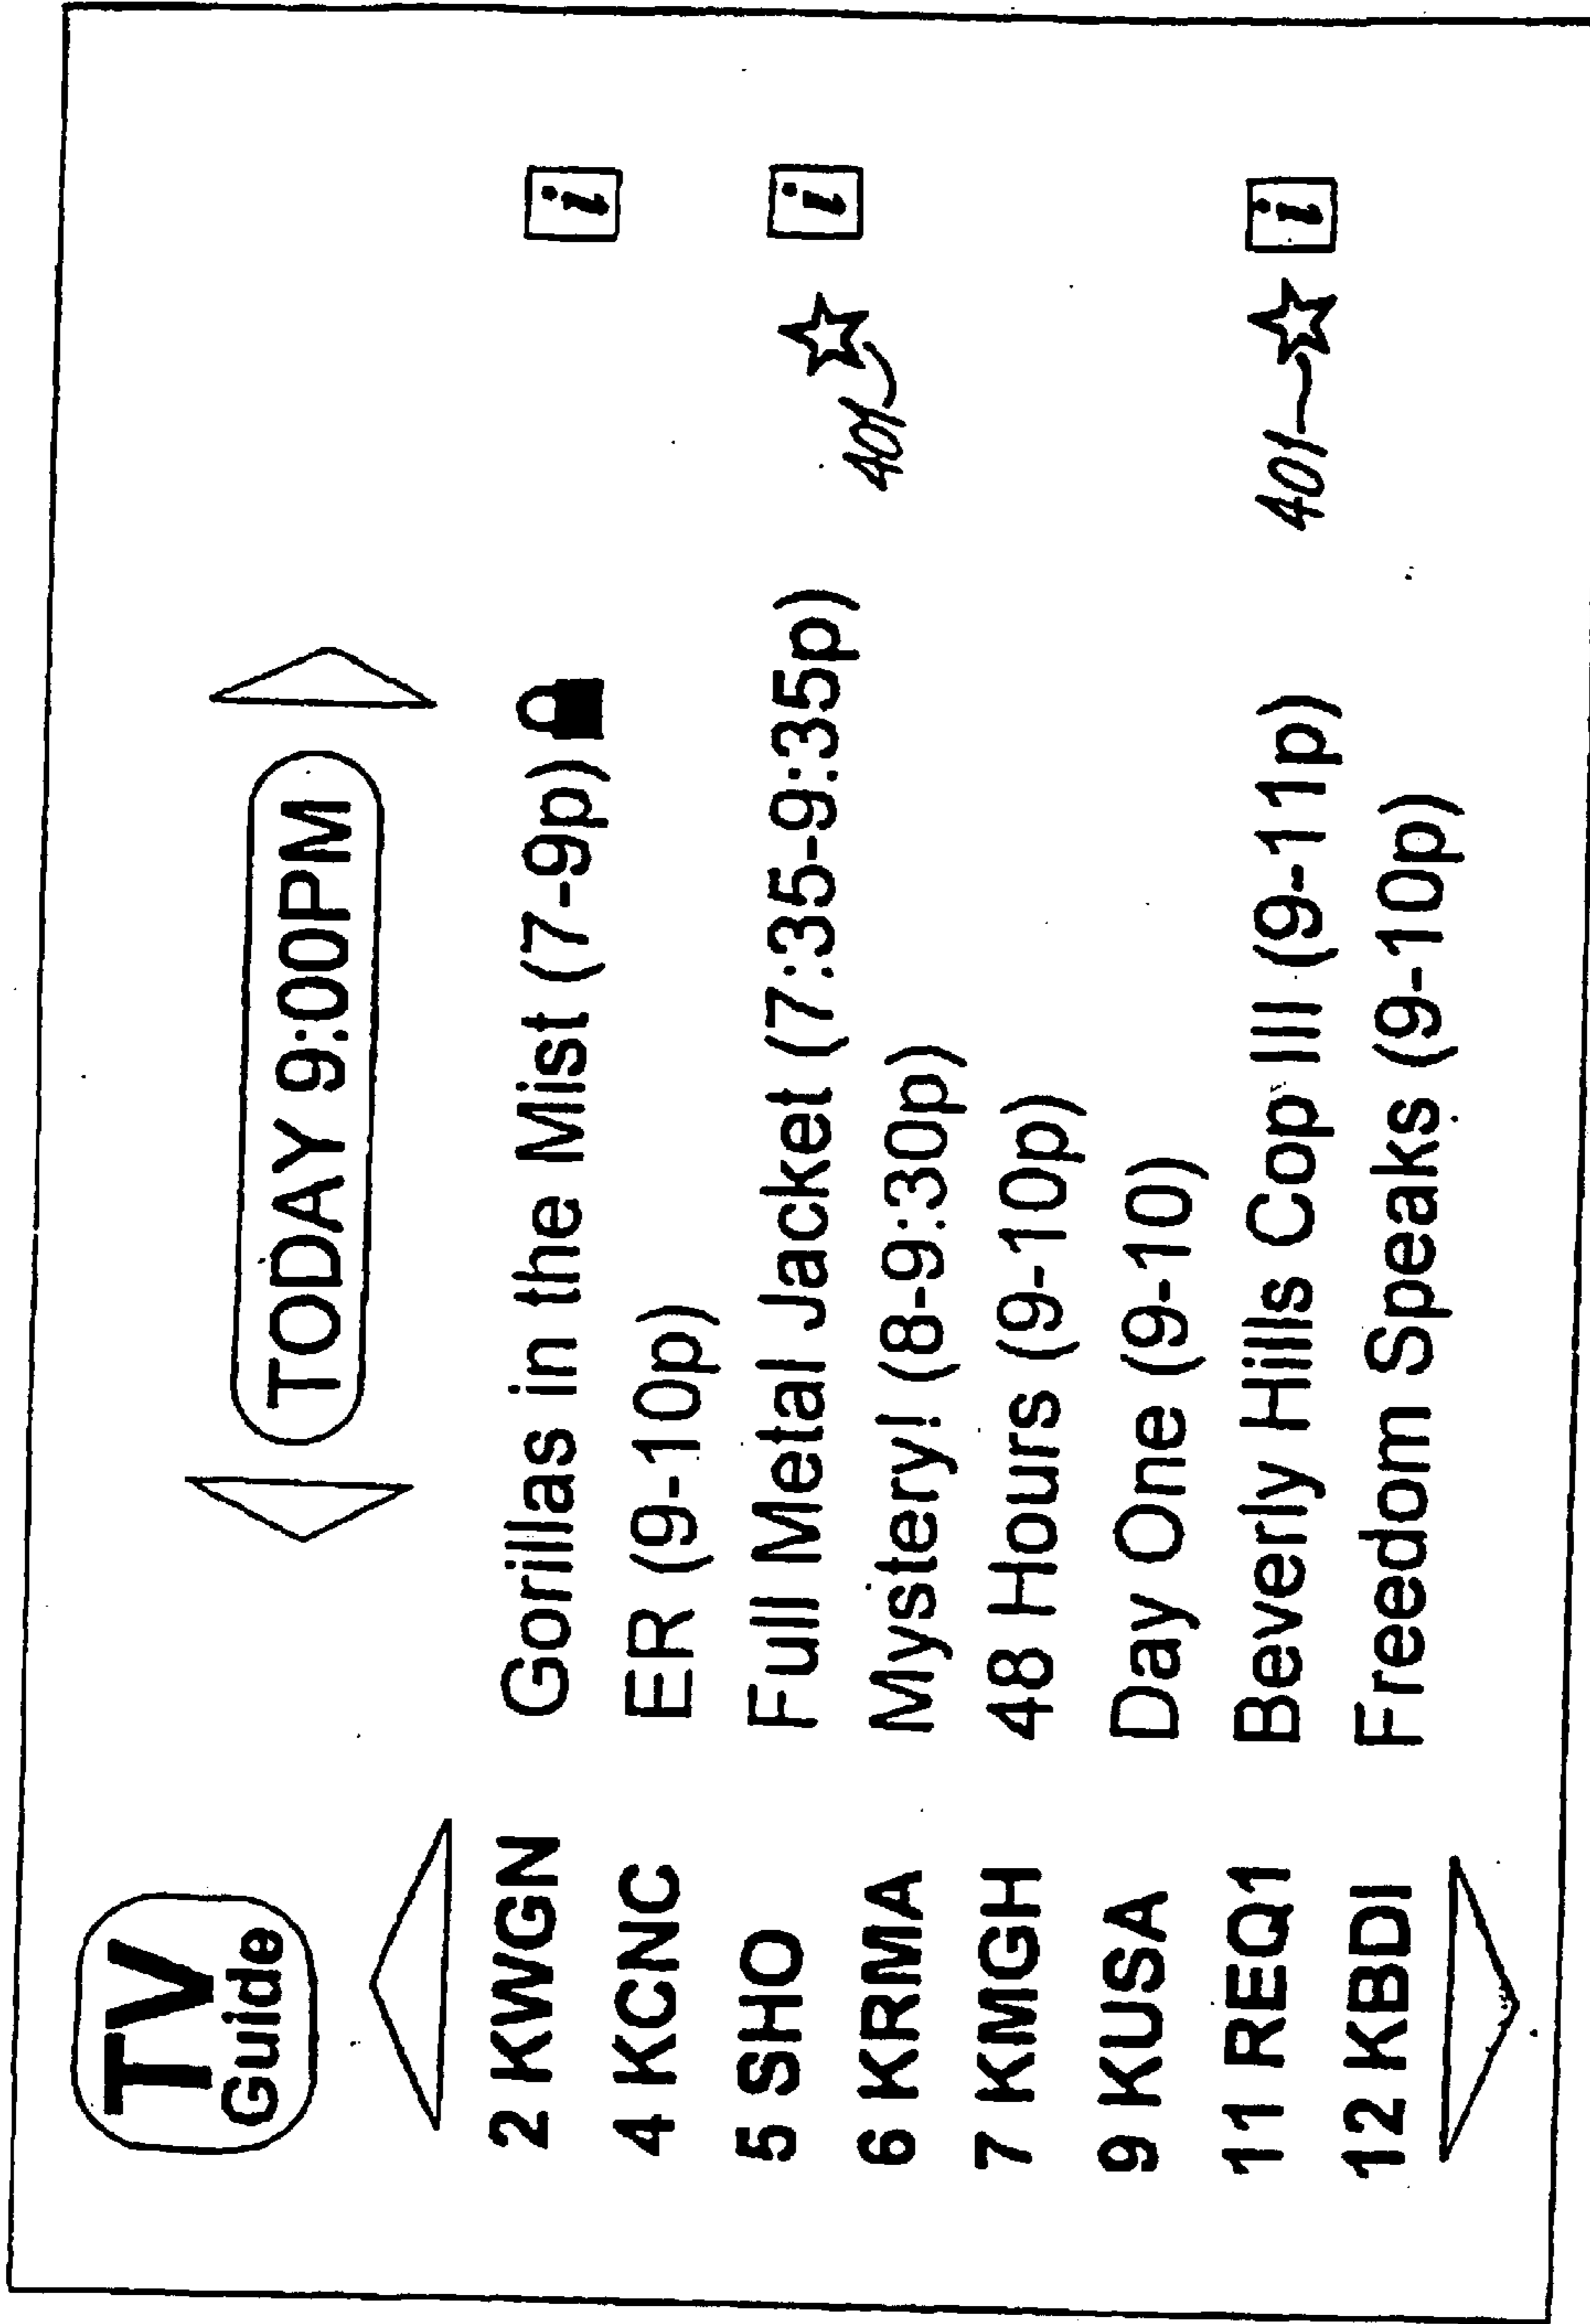 TV
Guide
TODAY 9:00PM
2 KWGN Gorillas in the Mist (7-9p) i
4 KCNC ER (9-10p)
5 SHO Full Metal Jacket (7:35-9:35p) 401 i
6 KRMA Mystery! (8-9:30p)
7 KMGH 48 Hours (9-10p)
9 KUSA Day One (9-10)
11 REQ1 Beverly Hills Cop III (9-11p) 401 i
12 KBDI Freedom Speaks (9-10p)